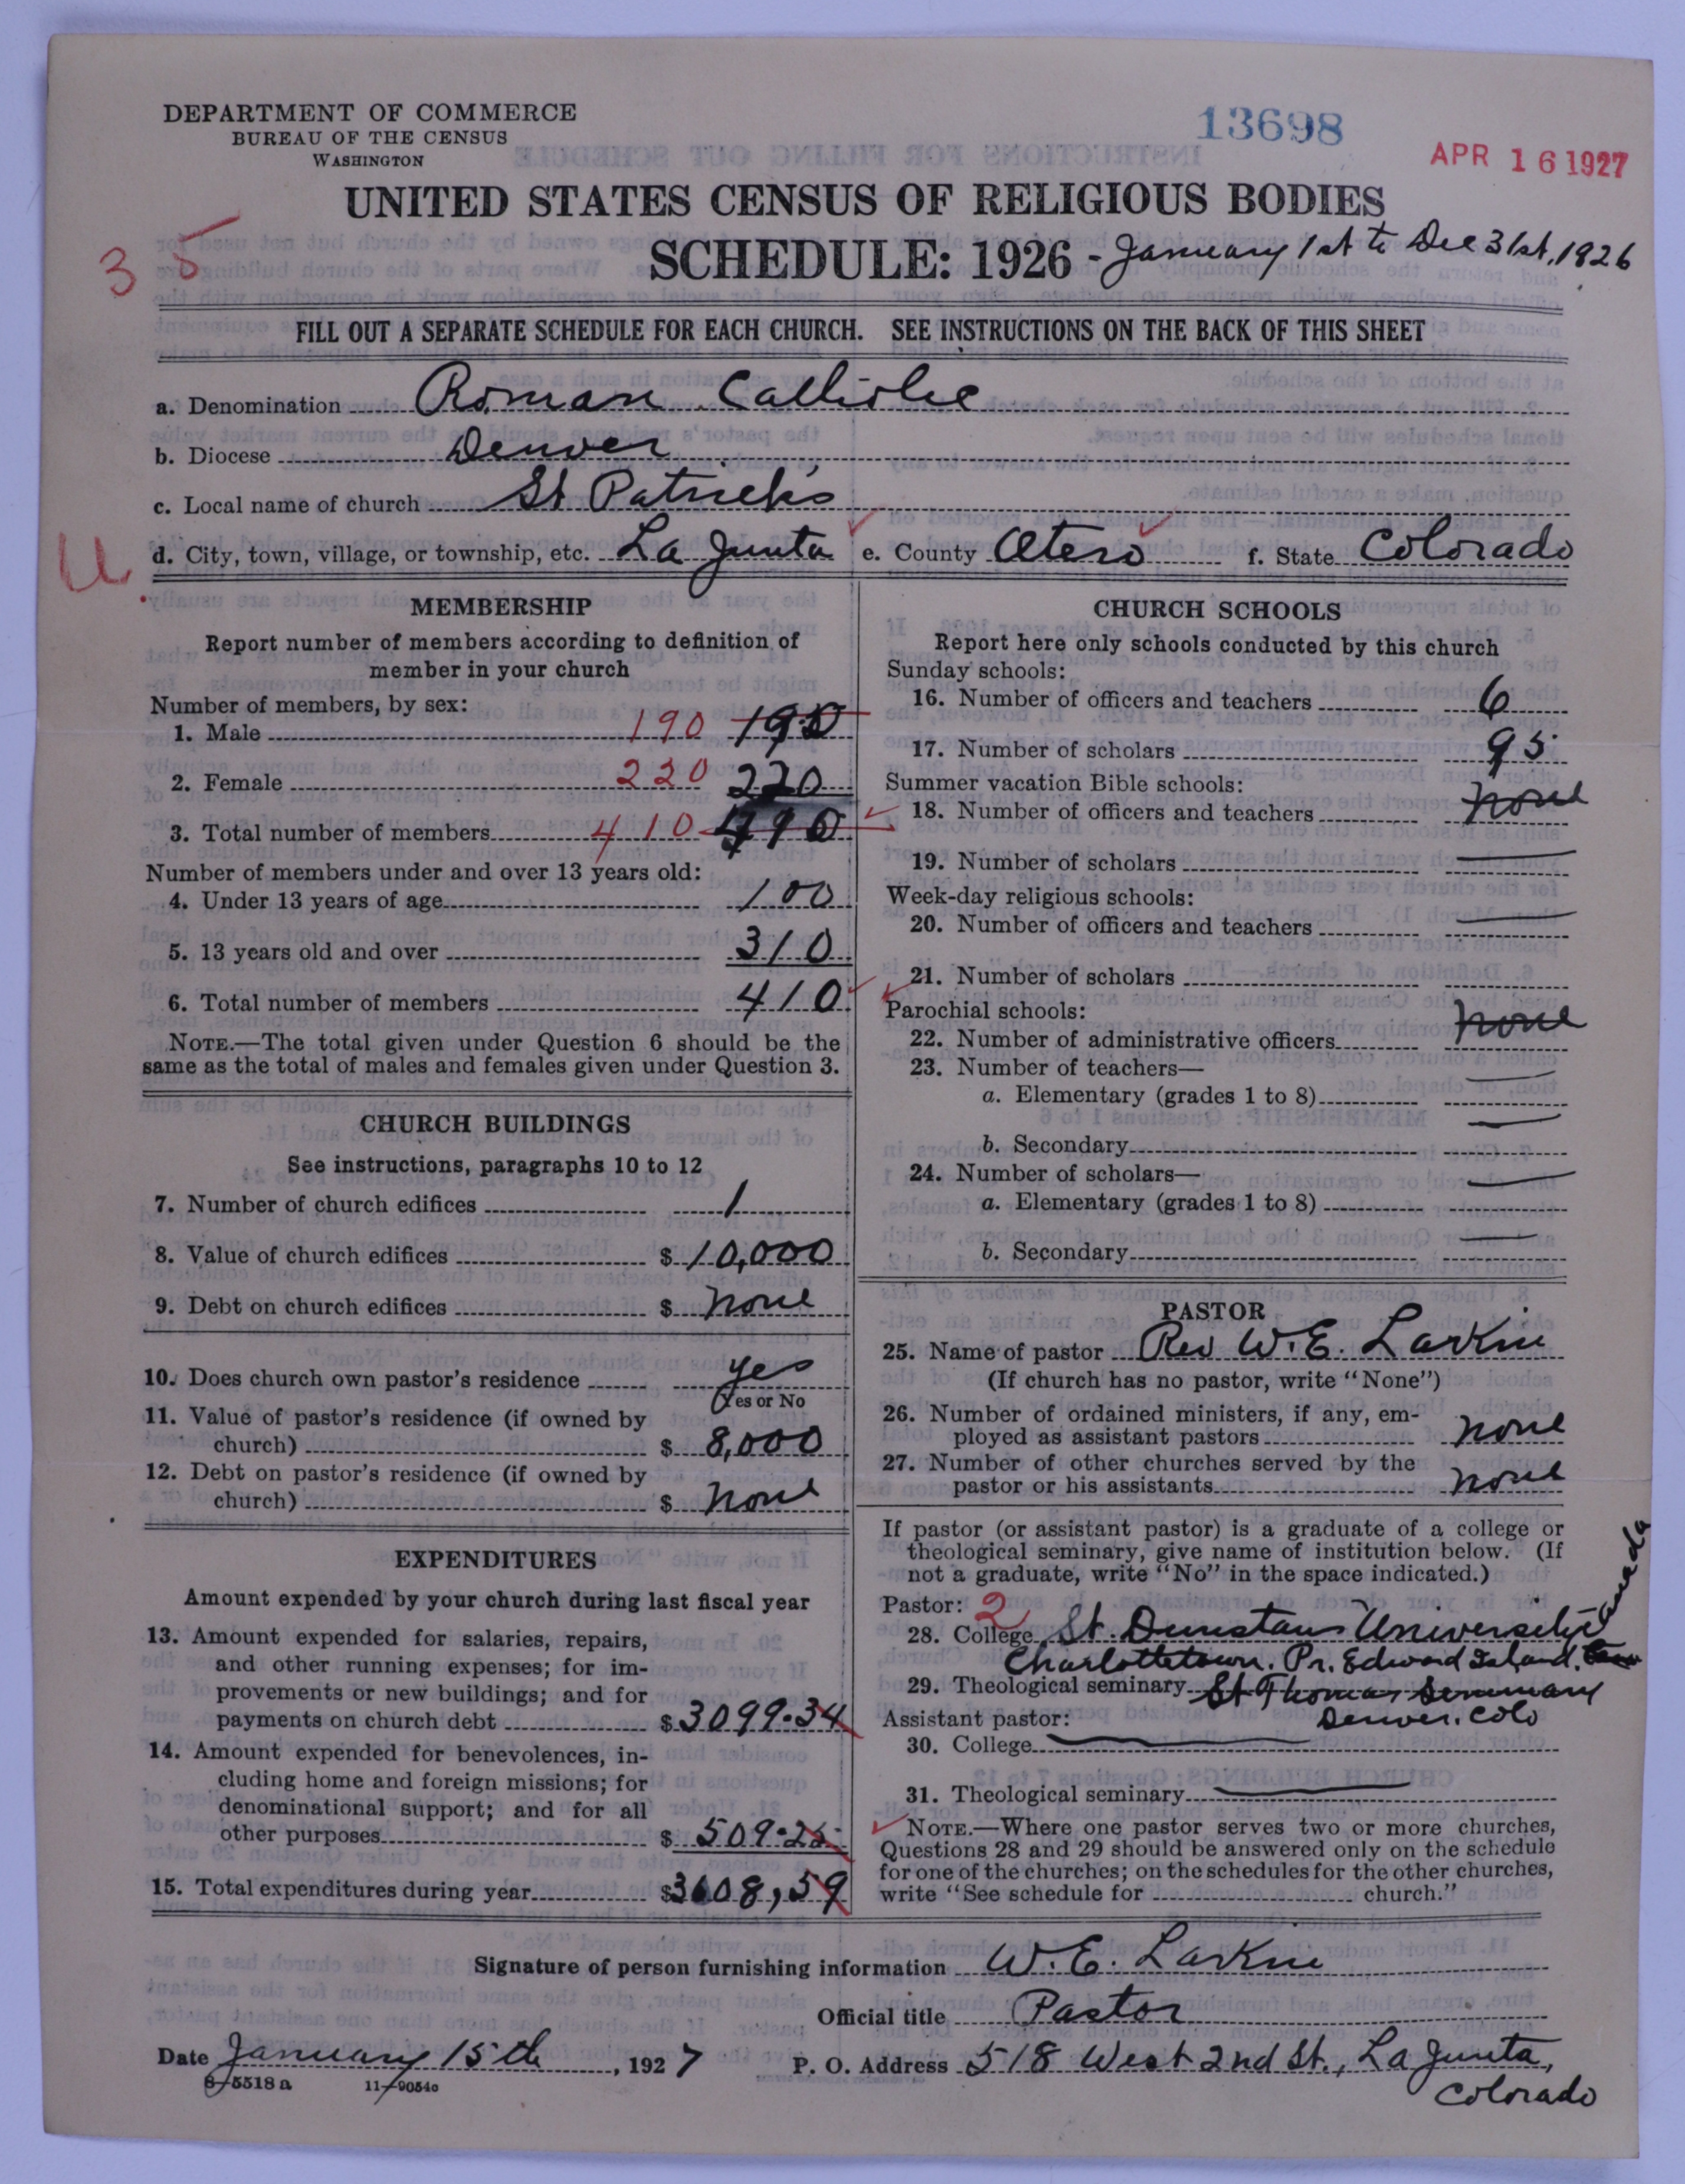 DEPARTMENT OF COMMERCE
BUREAU OF THE CENSUS
WASHINGTON
13698
APR 16 1927
UNITED STATES CENSUS OF RELIGIOUS BODIES
35
SCHEDULE: 1926 - January 1st to Dec 31st, 1926
FILL OUT A SEPARATE SCHEDULE FOR EACH CHURCH. SEE INSTRUCTIONS ON THE BACK OF THIS SHEET
a. Denomination Roman Catholic
b. Diocese Denver
c. Local name of church St Patrick's
U d. City, town, village, or township, etc. La Junta e. County Otero f. State Colorado
MEMBERSHIP
Report number of members according to definition of
member in your church
Number of members, by sex:
1. Male 190 190
2. Female 220 220
3. Total number of members 410 490
Number of members under and over 13 years old:
4. Under 13 years of age 100
5. 13 years old and over 310
6. Total number of members 410
NOTE.—The total given under Question 6 should be the
same as the total of males and females given under Question 3.
CHURCH BUILDINGS
See instructions, paragraphs 10 to 12
7. Number of church edifices 1
8. Value of church edifices $ 10,000
9. Debt on church edifices $ none
10. Does church own pastor's residence yes
(Yes or No
11. Value of pastor's residence (if owned by
church) $ 8,000
12. Debt on pastor's residence (if owned by
church) $ none
EXPENDITURES
Amount expended by your church during last fiscal year
13. Amount expended for salaries, repairs,
and other running expenses; for im-
provements or new buildings; and for
payments on church debt $ 3099.34
14. Amount expended for benevolences, in-
cluding home and foreign missions; for
denominational support; and for all
other purposes $ 509.25
15. Total expenditures during year $3608,59
CHURCH SCHOOLS
Report here only schools conducted by this church
Sunday schools:
16. Number of officers and teachers 6
17. Number of scholars 95
Summer vacation Bible schools:
18. Number of officers and teachers none
19. Number of scholars
Week-day religious schools:
20. Number of officers and teachers
21. Number of scholars
Parochial schools:
22. Number of administrative officers none
23. Number of teachers—
a. Elementary (grades 1 to 8)
b. Secondary
24. Number of scholars—
a. Elementary (grades 1 to 8)
b. Secondary
PASTOR
25. Name of pastor Rev W. E. Larkin
(If church has no pastor, write "None")
26. Number of ordained ministers, if any, em-
ployed as assistant pastors none
27. Number of other churches served by the
pastor or his assistants none
If pastor (or assistant pastor) is a graduate of a college or
theological seminary, give name of institution below. (If
not a graduate, write "No" in the space indicated.)
Pastor: 2
28. College St. Dunstans University
Charlottetown. Pr. Edward Island. Canada
29. Theological seminary St Thomas Seminary
Assistant pastor: Denver. Colo
30. College
31. Theological seminary
NOTE.—Where one pastor serves two or more churches,
Questions 28 and 29 should be answered only on the schedule
for one of the churches; on the schedules for the other churches,
write "See schedule for church."
Signature of person furnishing information W. E. Larkin
Official title Pastor
Date January 15th, 1927 P. O. Address 518 West 2nd St., La Junta,
Colorado
8-5518 a 11-9054c